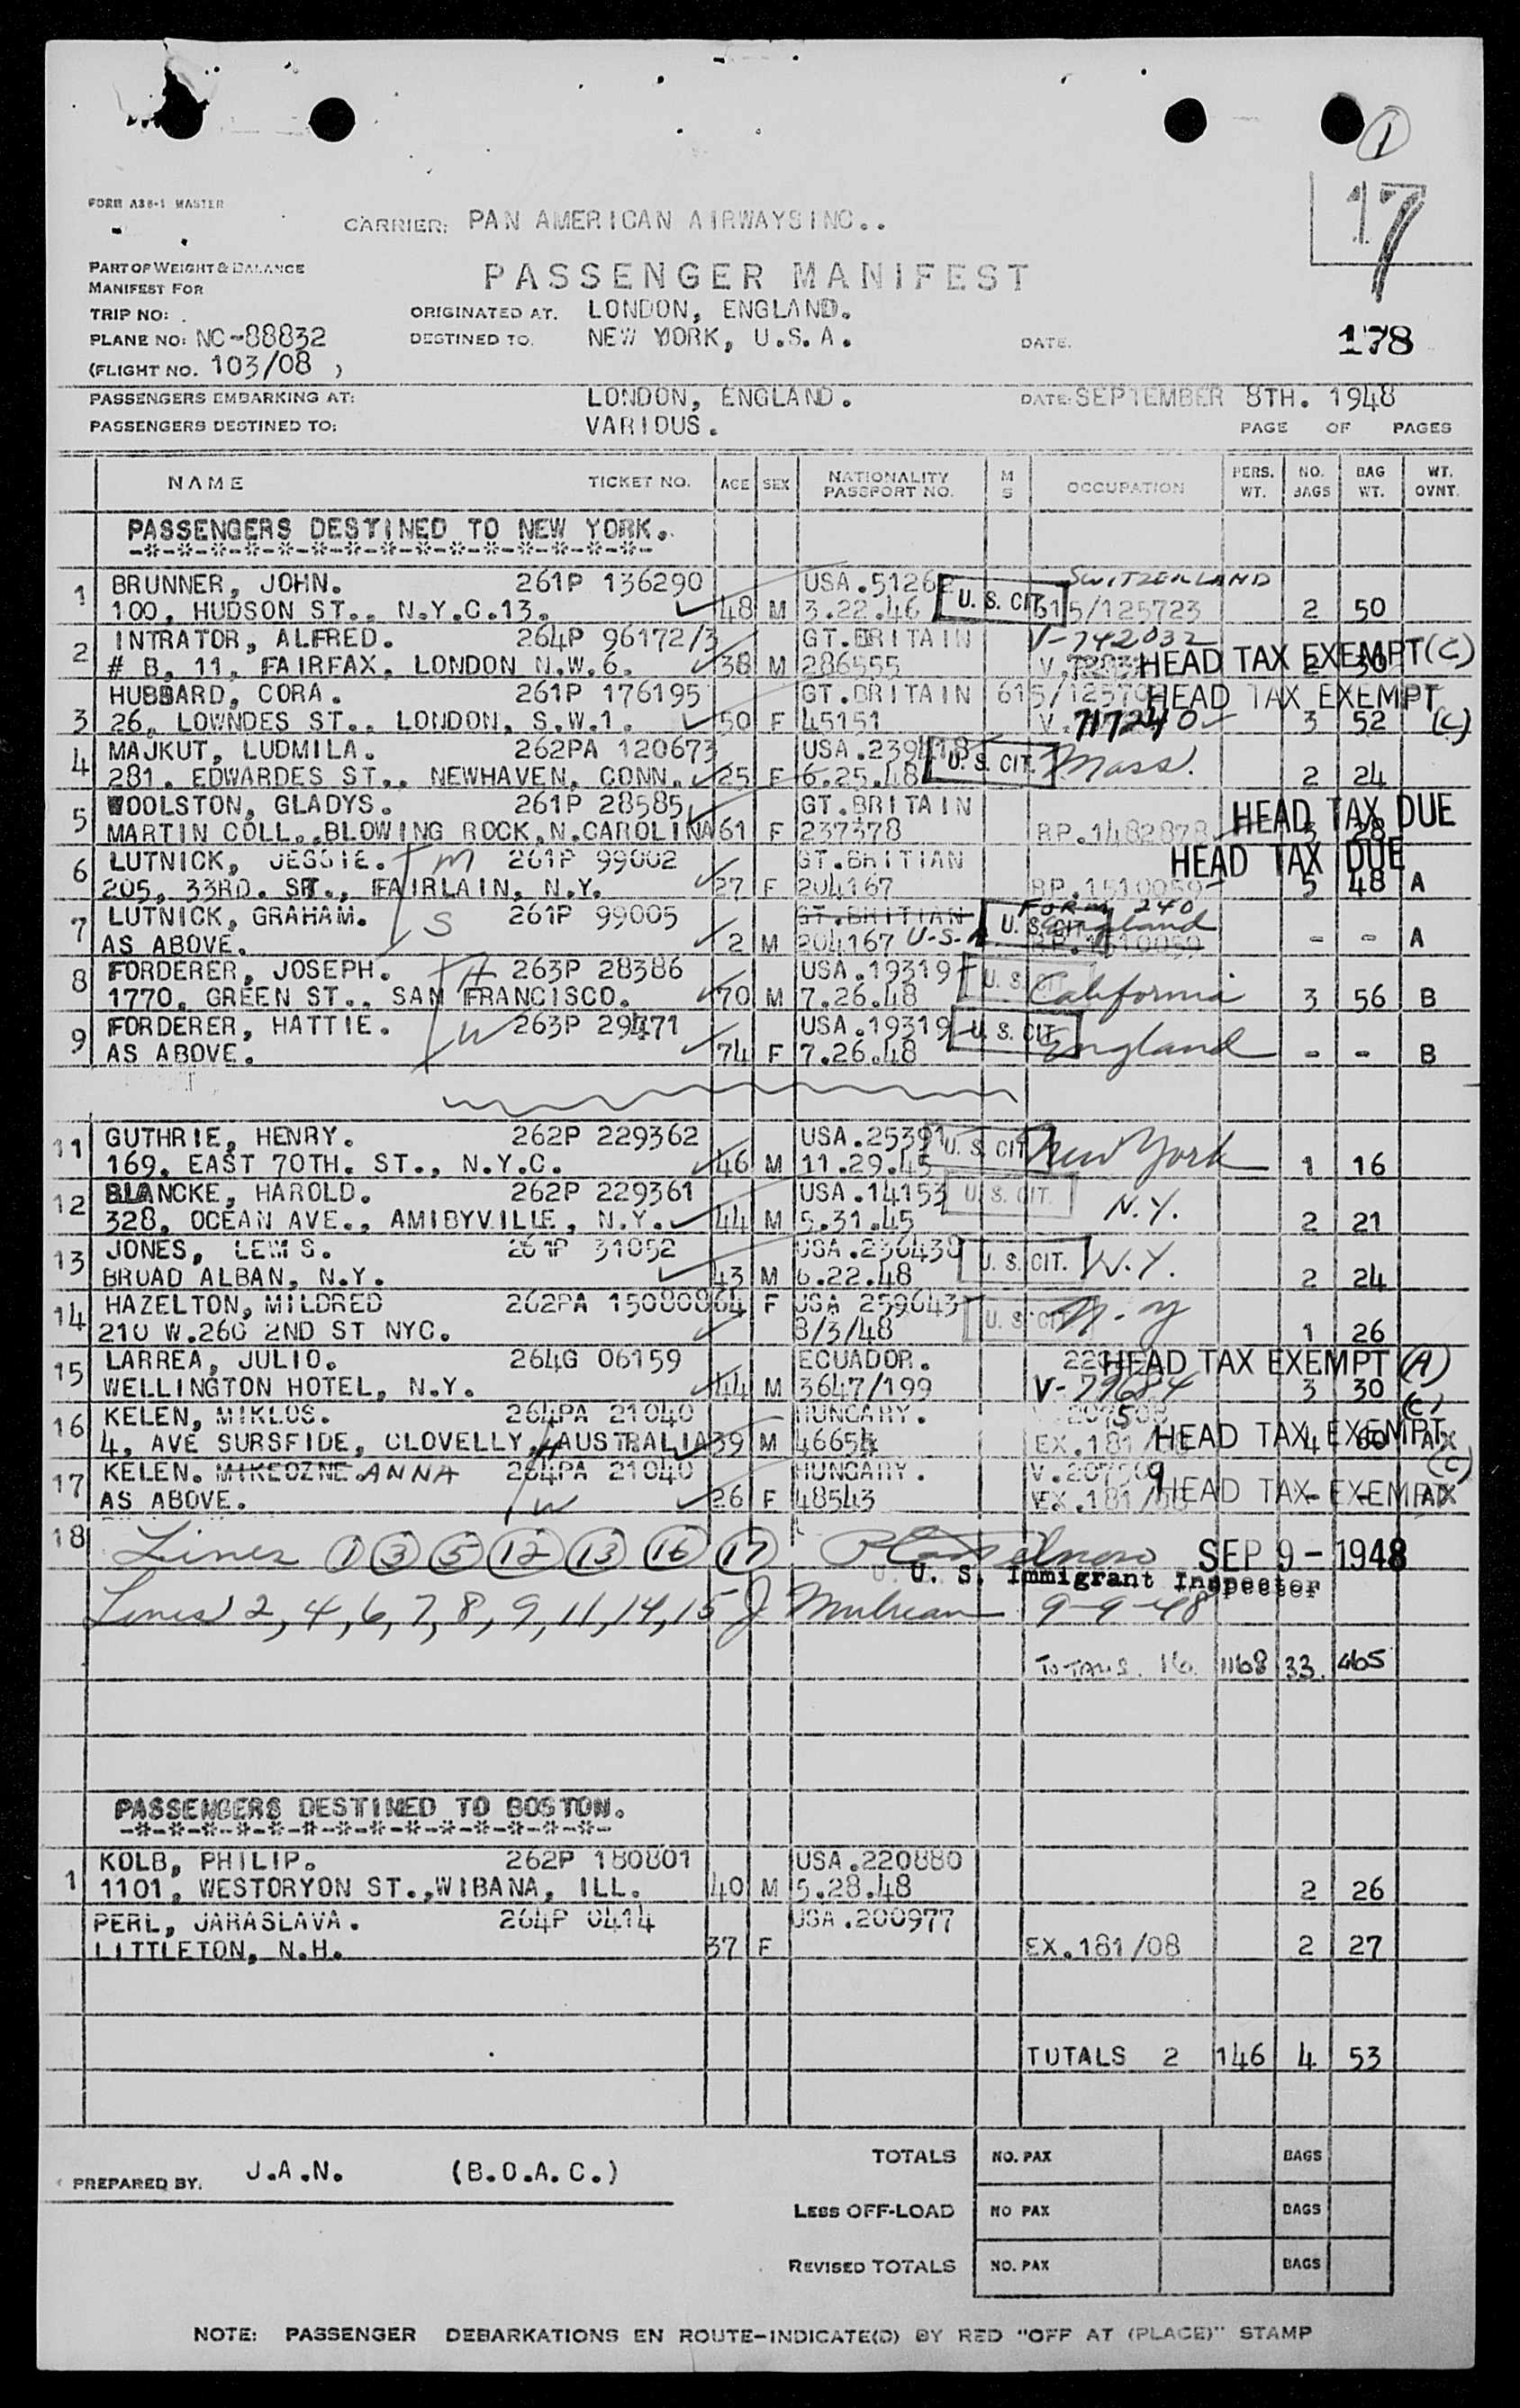 1
17
FORM A36-1 MASTER
CARRIER: PAN AMERICAN AIRWAYSINC..
PART OF WEIGHT & BALANCE
MANIFEST FOR
PASSENGER MANIFEST
TRIP NO:
ORIGINATED AT. LONDON, ENGLAND.
PLANE NO: NC-88832
DESTINED TO. NEW YORK, U.S.A.
DATE.
178
(FLIGHT NO. 103/08 )
PASSENGERS EMBARKING AT: LONDON, ENGLAND. DATE: SEPTEMBER 8TH. 1948
PASSENGERS DESTINED TO: VARIOUS. PAGE OF PAGES
NAME TICKET NO. AGE SEX NATIONALITY PASSPORT NO. M S OCCUPATION PERS. WT. NO. BAGS BAG WT. WT. OVNT.
PASSENGERS DESTINED TO NEW YORK.
-*-*-*-*-*-*-*-*-*-*-*-*-*-*-*-
1 BRUNNER, JOHN. 261P 136290 USA.51262 SWITZERLAND
100, HUDSON ST., N.Y.C.13. 48 M 3.22.46 U.S. CIT. 615/125723 2 50
2 INTRATOR, ALFRED. 264P 96172/3 GT.BRITAIN V-742032
# B, 11, FAIRFAX, LONDON N.W.6. 38 M 286555 HEAD TAX EXEMPT (C) 2 30
HUBBARD, CORA. 261P 176195 GT.BRITAIN HEAD TAX EXEMPT
3 26, LOWNDES ST., LONDON, S.W.1. 50 F 45151 V.717240 3 52 (C)
4 MAJKUT, LUDMILA. 262PA 120673 USA.239418
281, EDWARDES ST., NEWHAVEN, CONN. 25 F 6.25.48 U.S. CIT. Mass. 2 24
5 WOOLSTON, GLADYS. 261P 28585 GT.BRITAIN
MARTIN COLL., BLOWING ROCK, N.CAROLINA 61 F 237378 RP.1482878 HEAD TAX DUE 3 28
6 LUTNICK, JESSIE. m 261P 99002 GT.BRITIAN HEAD TAX DUE
205, 33RD. ST., FAIRLAIN, N.Y. 27 F 204167 RP.1510059 5 48 A
7 LUTNICK, GRAHAM. S 261P 99005 GT.BRITIAN U.S. CIT. FORM 240 England
AS ABOVE. 2 M 204167 U.S.A RP.1510059 - - A
8 FORDERER, JOSEPH. H 263P 28386 USA.19319 U.S. CIT.
1770, GREEN ST., SAN FRANCISCO. 70 M 7.26.48 California 3 56 B
9 FORDERER, HATTIE. W 263P 29471 USA.19319 U.S. CIT.
AS ABOVE. 74 F 7.26.48 England - - B
11 GUTHRIE, HENRY. 262P 229362 USA.25391 U.S. CIT.
169, EAST 70TH. ST., N.Y.C. 46 M 11.29.45 New York 1 16
12 BLANCKE, HAROLD. 262P 229361 USA.14153 U.S. CIT.
328, OCEAN AVE., AMIBYVILLE, N.Y. 44 M 5.31.45 N.Y. 2 21
13 JONES, LEWIS. 261P 31052 USA.236438 U.S. CIT. N.Y.
BROAD ALBAN, N.Y. 43 M 6.22.48 2 24
14 HAZELTON, MILDRED 262PA 150808 64 F USA 259643 U.S. CIT. N.Y
210 W.260 2ND ST NYC. 8/3/48 1 26
15 LARREA, JULIO. 264G 06159 ECUADOR. HEAD TAX EXEMPT (A)
WELLINGTON HOTEL, N.Y. 44 M 3647/199 V-79684 3 30
16 KELEN, MIKLOS. 264PA 21040 HUNGARY. (C)
4, AVE SURSFIDE, CLOVELLY, AUSTRALIA H 39 M 46654 EX.181/ HEAD TAX EXEMPT 4 60 AX
17 KELEN. MIKEOZNE ANNA 264PA 21040 HUNGARY. V.207509 (C)
AS ABOVE. W 26 F 48543 EX.181/08 HEAD TAX EXEMPT - - AX
18 Lines 1 3 5 12 13 16 17 SEP 9 - 1948
U. S. Immigrant Inspector
Lines 2, 4, 6, 7, 8, 9, 11, 14, 15 9-9-48
TOTALS. 16. 1168 33. 465
PASSENGERS DESTINED TO BOSTON.
-*-*-*-*-*-*-*-*-*-*-*-*-*-*-
1 KOLB, PHILIP. 262P 180801 USA.220880
1101, WESTORYON ST., WIBANA, ILL. 40 M 5.28.48 2 26
PERL, JARASLAVA. 264P 0414 USA.200977
LITTLETON, N.H. 37 F EX.181/08 2 27
TOTALS 2 146 4 53
TOTALS NO. PAX BAGS
PREPARED BY. J.A.N. (B.O.A.C.)
LESS OFF-LOAD NO PAX BAGS
REVISED TOTALS NO. PAX BAGS
NOTE: PASSENGER DEBARKATIONS EN ROUTE-INDICATE(D) BY RED "OFF AT (PLACE)" STAMP